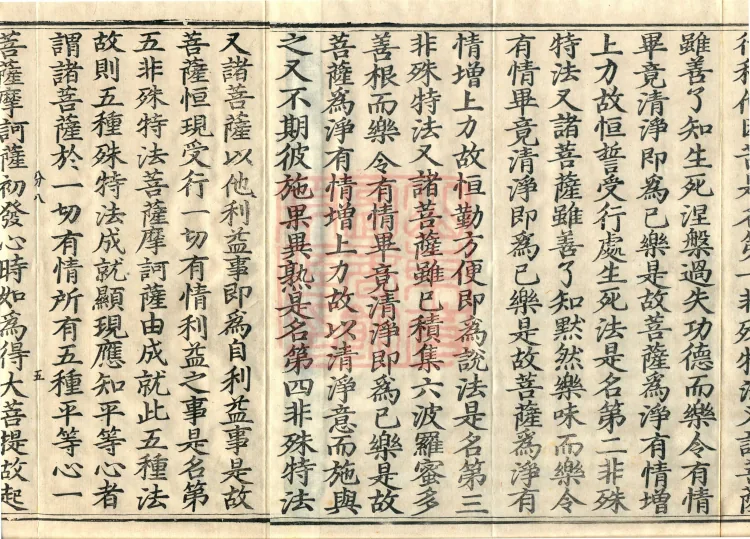 雖善了知生死涅槃過失功德而樂令有情
畢竟清淨即爲已樂是故菩薩爲淨有情增
上力故恒誓受行處生死法是名第二非殊
特法又諸菩薩雖善了知黙然樂味而樂令
有情畢竟清淨即爲已樂是故菩薩爲淨有
情增上力故恒勤方便即爲說法是名第三
非殊特法又諸菩薩雖已積集六波羅蜜多
善根而樂令有情畢竟清淨即爲已樂是故
菩薩爲淨有情增上力故以清淨意而施與
之又不期彼施果異熟是名第四非殊特法
又諸菩薩以他利益事即爲自利益事是故
菩薩恒現受行一切有情利益之事是名第
五非殊特法菩薩摩訶薩由成就此五種法
故則五種殊特法成就顯現應知平等心者
謂諸菩薩於一切有情所有五種平等心一
分八 五
菩薩摩訶薩初發心時如爲得大菩提故起